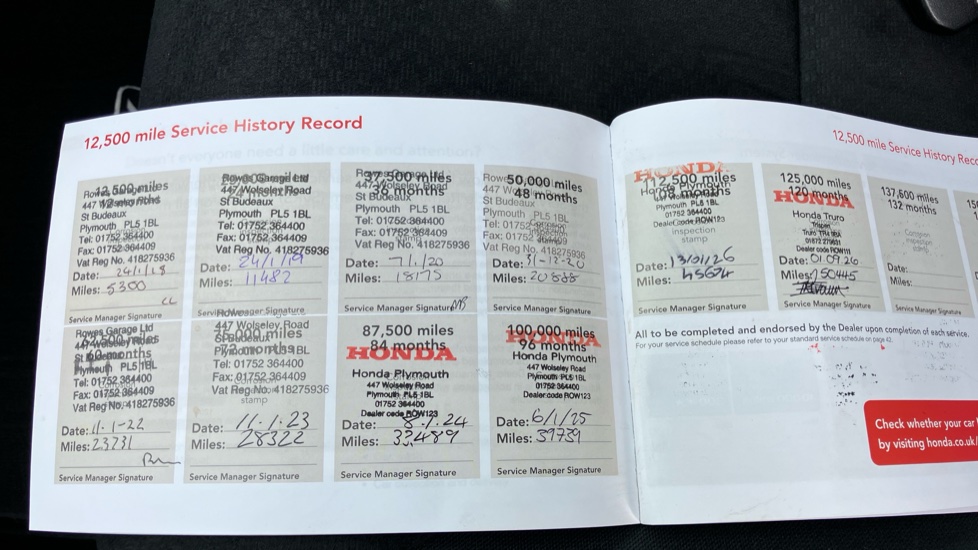 12,500 mile Service History Record
12,500 miles
12 months
Rowes Garage Ltd
447 Wolseley Road
St Budeaux
Plymouth PL5 1BL
Tel: 01752 364400
Fax: 01752 364409
Vat Reg No. 418275936
Date: 24/1/18
Miles: 5300
CL
Service Manager Signature
Rowes Garage Ltd
447 Wolseley Road
St Budeaux
Plymouth PL5 1BL
Tel: 01752 364400
Fax: 01752 364409
Vat Reg No. 418275936
Date: 24/1/19
Miles: 11482
Service Manager Signature
37,500 miles
36 months
447 Wolseley Road
St Budeaux
Plymouth PL5 1BL
Tel: 01752 364400
Fax: 01752 364409
Vat Reg No. 418275936
Date: 7/1/20
Miles: 18175
Service Manager Signature
50,000 miles
48 months
St Budeaux
Plymouth PL5 1BL
Tel: 01752 364400
Fax: 01752 364409
Vat Reg No. 418275936
Date: 31-12-20
Miles: 20888
Service Manager Signature
Rowes Garage Ltd
447 Wolseley Road
60 months
Plymouth PL5 1BL
Tel: 01752 364400
Fax: 01752 364409
Vat Reg No. 418275936
Date: 11-1-22
Miles: 23231
Service Manager Signature
447 Wolseley Road
75,000 miles
St Budeaux
72 months
Plymouth PL5 1BL
Tel: 01752 364400
Fax: 01752 364409
Vat Reg No. 418275936
stamp
Date: 11.1.23
Miles: 28322
Service Manager Signature
87,500 miles
84 months
HONDA
Honda Plymouth
447 Wolseley Road
Plymouth PL5 1BL
01752 364400
Dealer code ROW123
Date: 8.1.24
Miles: 33489
Service Manager Signature
100,000 miles
96 months
HONDA
Honda Plymouth
447 Wolseley Road
Plymouth PL5 1BL
01752 364400
Dealer code ROW123
Date: 6/1/25
Miles: 39739
Service Manager Signature
12,500 mile Service History Reco
HONDA
miles
months
Honda Plymouth
Plymouth PL5 1BL
01752 364400
Dealer code ROW123
inspection
stamp
Date: 13/01/26
Miles: 45674
Service Manager Signature
125,000 miles
120 months
HONDA
Honda Truro
01872 271831
Date: 01.09.26
Miles: 50445
Service Manager Signature
137,500 miles
132 months
Date:
Miles:
Service Manager Signature
All to be completed and endorsed by the Dealer upon completion of each service.
For your service schedule please refer to your standard service schedule on page 42.
Check whether your car
by visiting honda.co.uk/